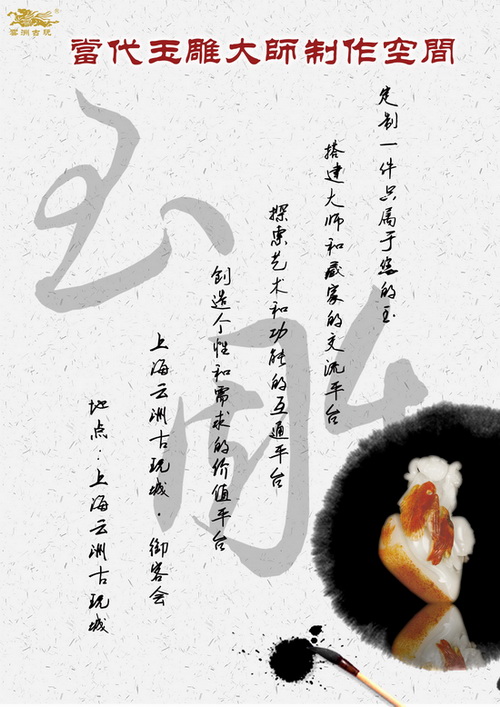 雲洲古玩
當代玉雕大師制作空間
玉雕
定制一件只属于您的玉
搭建大师和藏家的交流平台
探索艺术和功能的互通平台
创造个性和需求的价值平台
上海云洲古玩城·御客会
地点：上海云洲古玩城